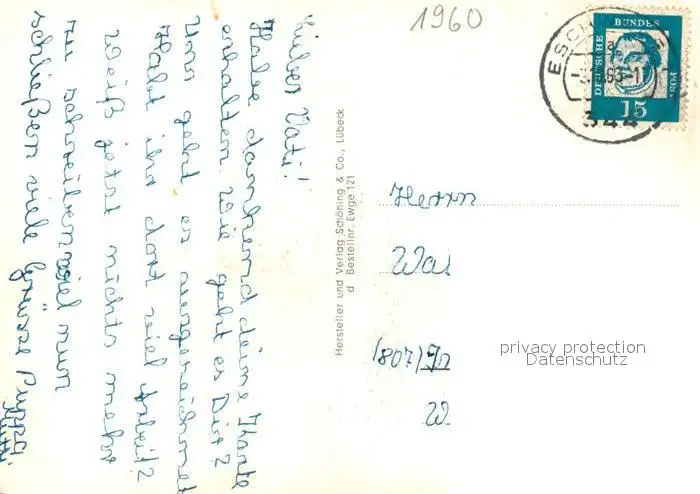 Lieber Vati!
Habe dankend deine Karte
erhalten. Wie geht es Dir?
Uns geht es ausgezeichnet
Habt ihr dort viel Arbeit?
Weiß jetzt nichts mehr
zu schreiben will nun
schließen viele Grüsse Puppa
Mutti.
Hersteller und Verlag Schöning & Co., Lübeck
d Bestellnr. Ewge 121
1960
DEUTSCHE
BUNDES
POST
15
ESCH
344
Herrn
Wal
(807) In
W.
privacy protection
Datenschutz